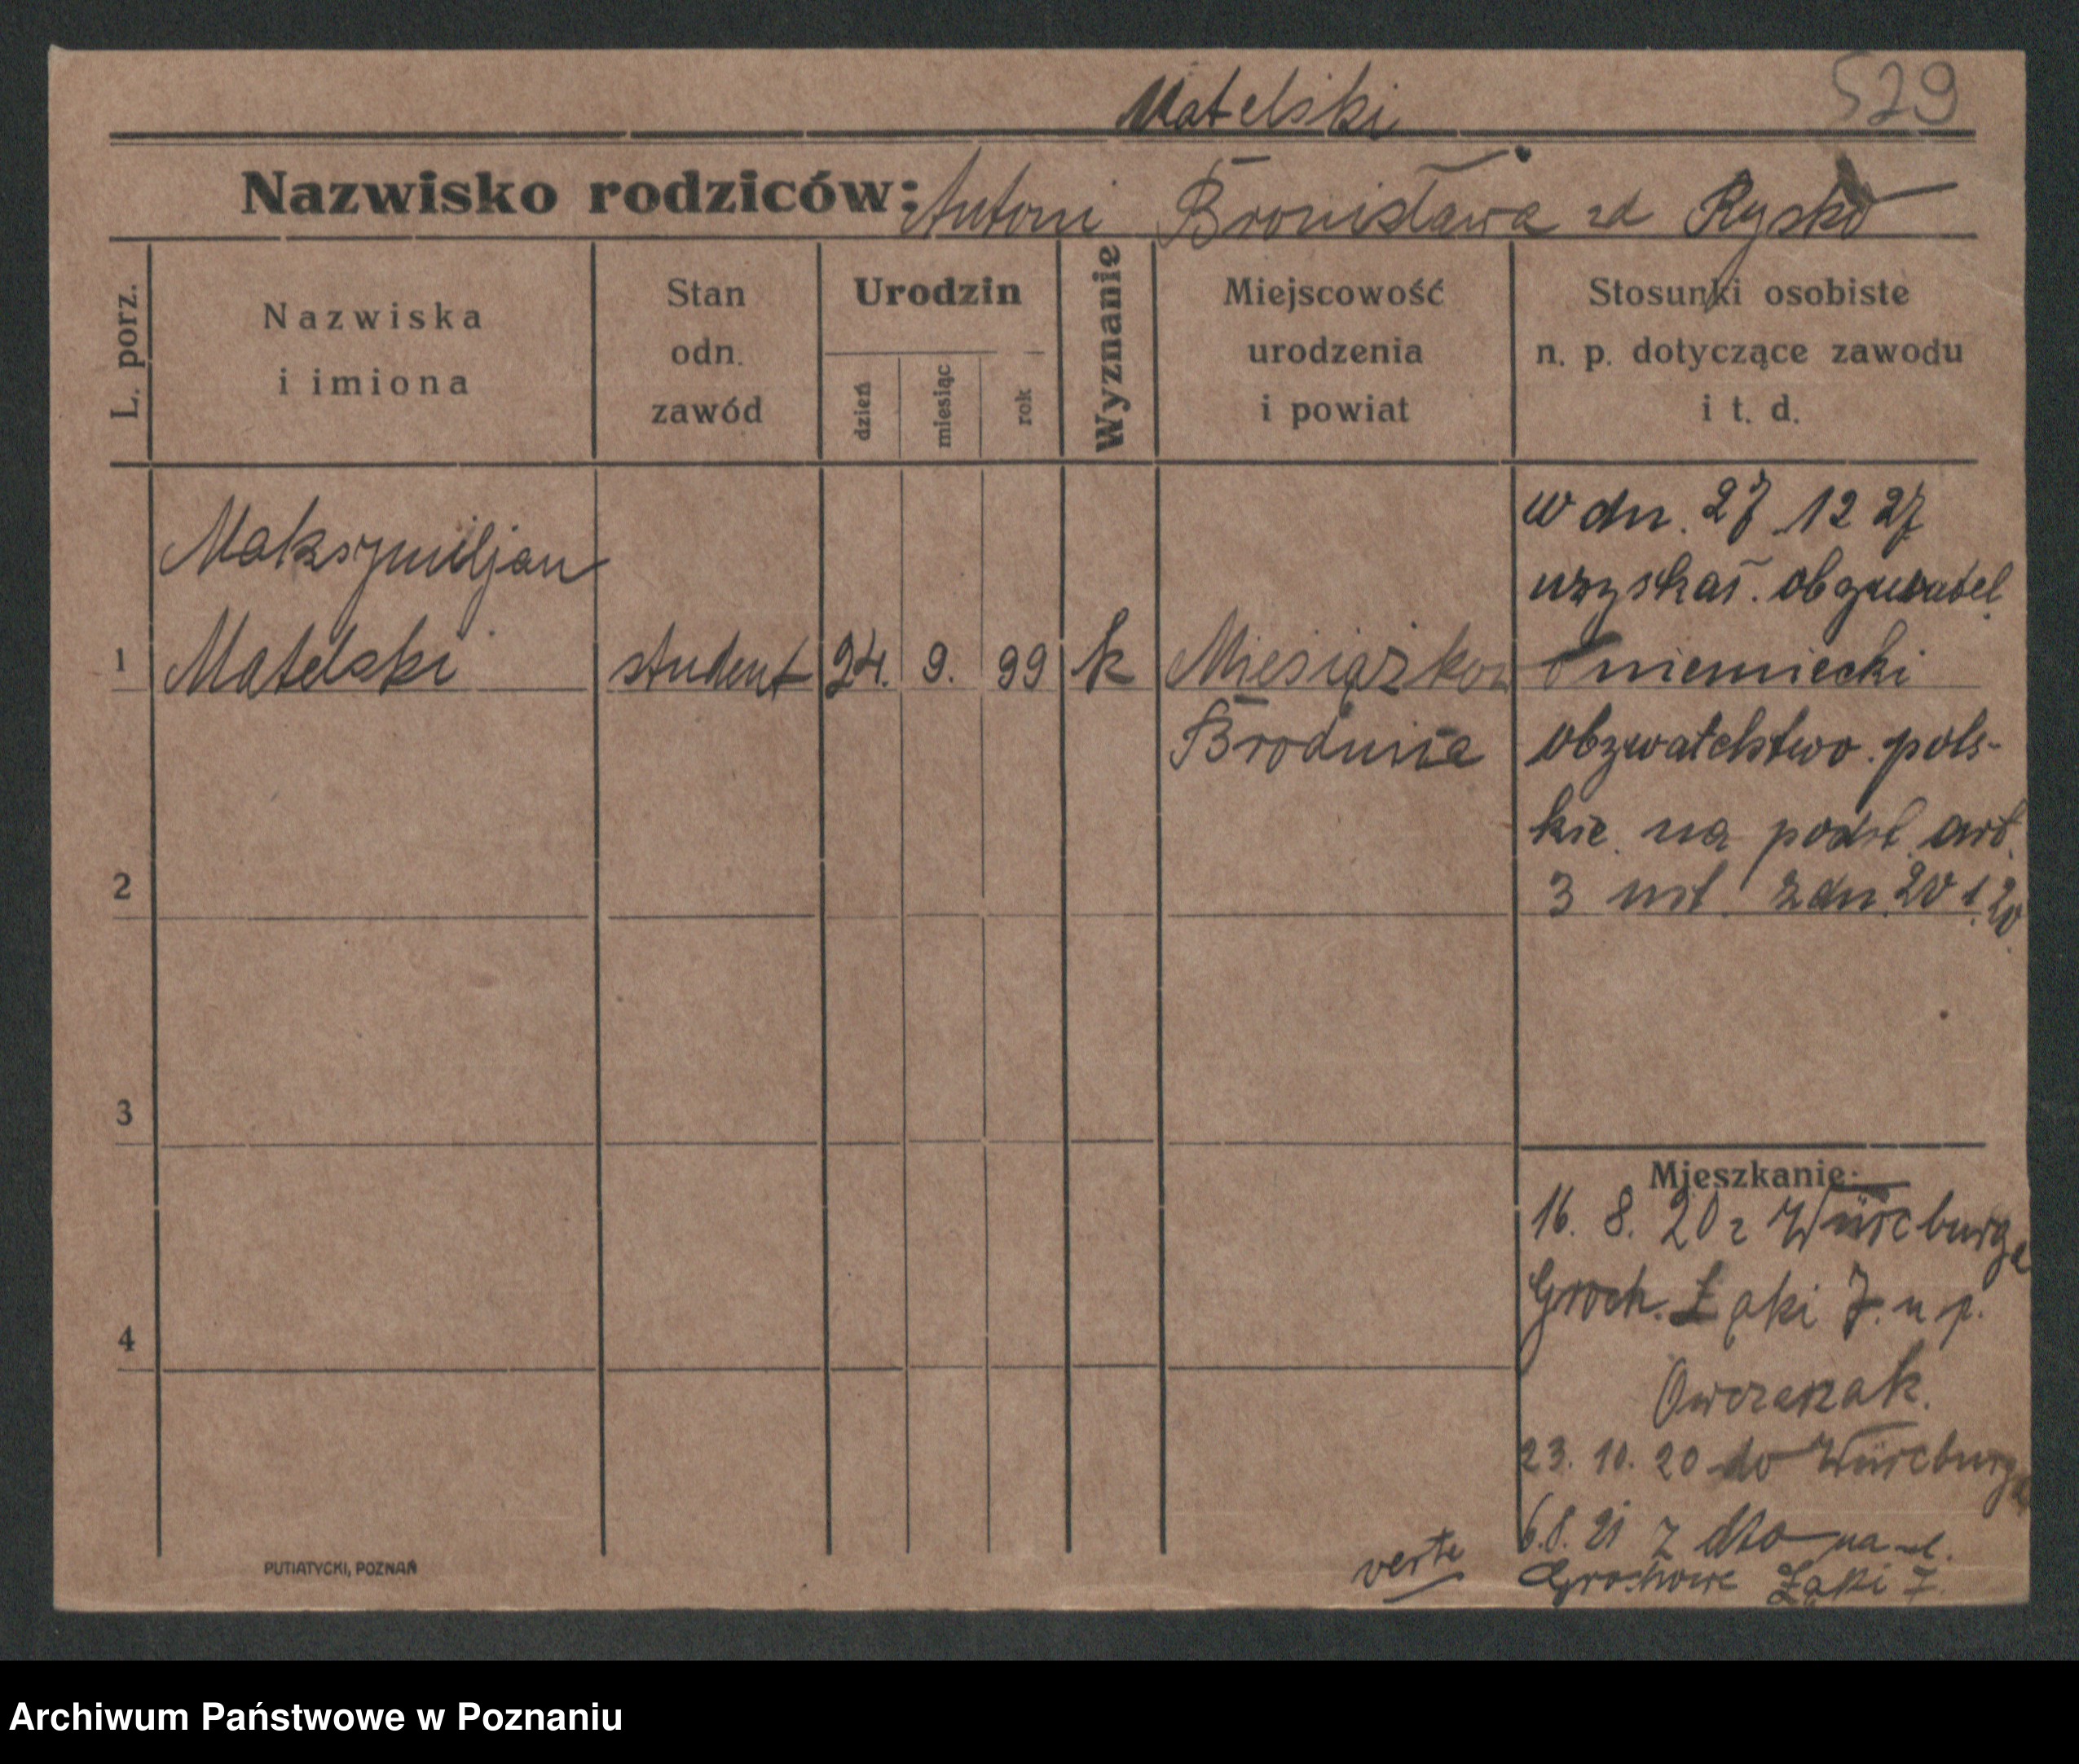 529
Matelski
Nazwisko rodziców: Antoni Bronisława zd Rysko
L. porz.
Nazwiska
i imiona
Stan
odn.
zawód
Urodzin
dzień
miesiąc
rok
Wyznanie
Miejscowość
urodzenia
i powiat
Stosunki osobiste
n. p. dotyczące zawodu
i t. d.
1
Maksymiljan
Matelski
student
24.
9.
99
k
Miesiązkow
Brodnica
w dn. 27 12 27
uzyskał. obywatel
niemiecki
obywatelstwo. pols-
kie na podst. art.
3 ust. z dn. 20 1 20
2
3
4
Mieszkanie:
16. 8. 20 z Würcburga
Groch. Łąki 7. u p.
Owczarzak.
23. 10. 20 do Würcburga
6.8.21 z dto na
Grochowe Łąki 7.
verte
PUTIATYCKI, POZNAŃ
Archiwum Państwowe w Poznaniu